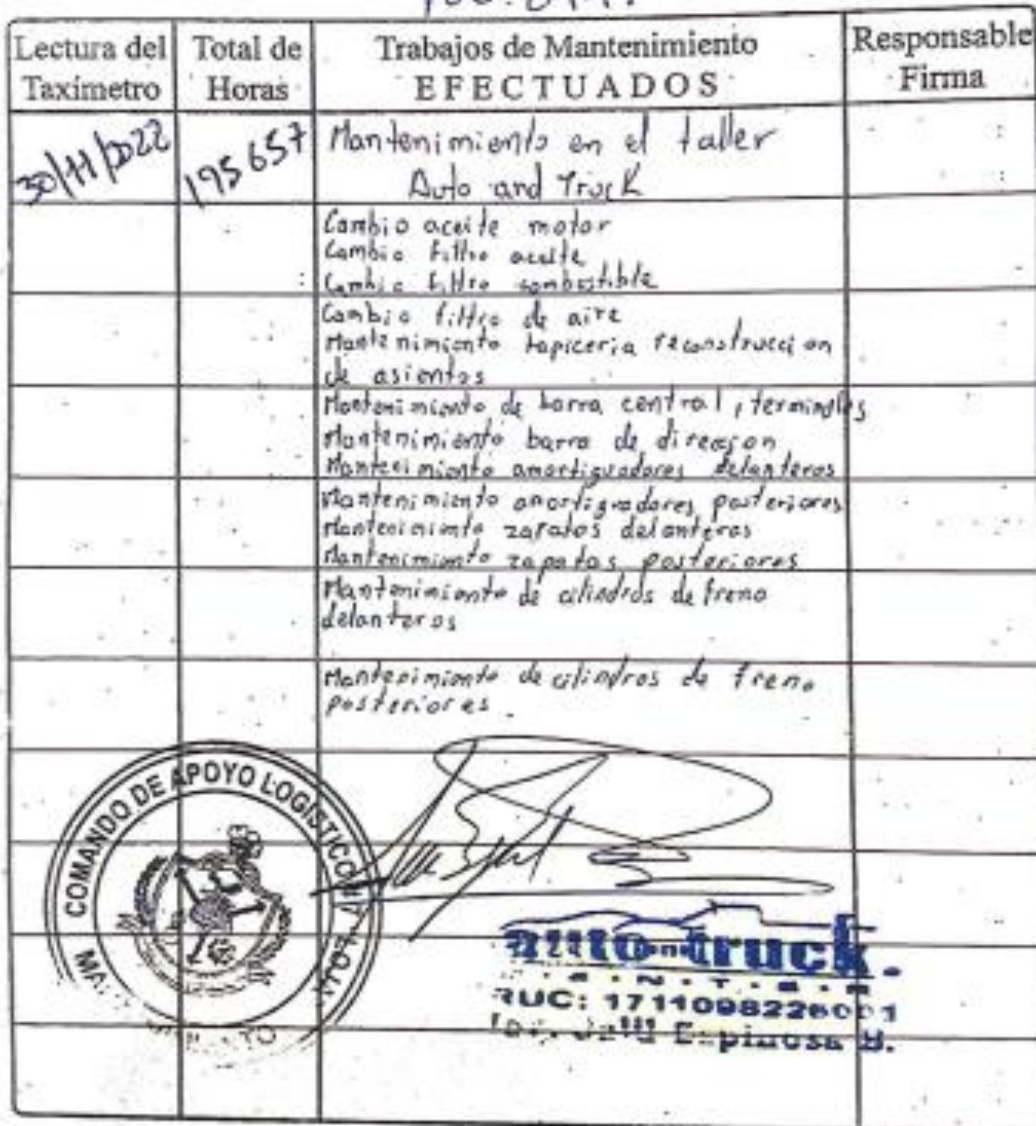 Lectura del Taxímetro
Total de Horas
Trabajos de Mantenimiento
EFECTUADOS
Responsable Firma
30/11/2022
195657
Mantenimiento en el taller
Auto and Truck
Cambio aceite motor
Cambio filtro aceite
Cambio filtro combustible
Cambio filtro de aire
Mantenimiento tapiceria reconstruccion
de asientos
Mantenimiento de barra central, terminales
Mantenimiento barra de direccion
Mantenimiento amortiguadores delanteros
Mantenimiento amortiguadores posteriores
Mantenimiento zapatas delanteras
Mantenimiento zapatas posteriores
Mantenimiento de cilindros de freno
delanteros
Mantenimiento de cilindros de freno
posteriores
COMANDO DE APOYO LOGISTICO
auto and truck.
RUC: 1711098226001
Espinosa B.